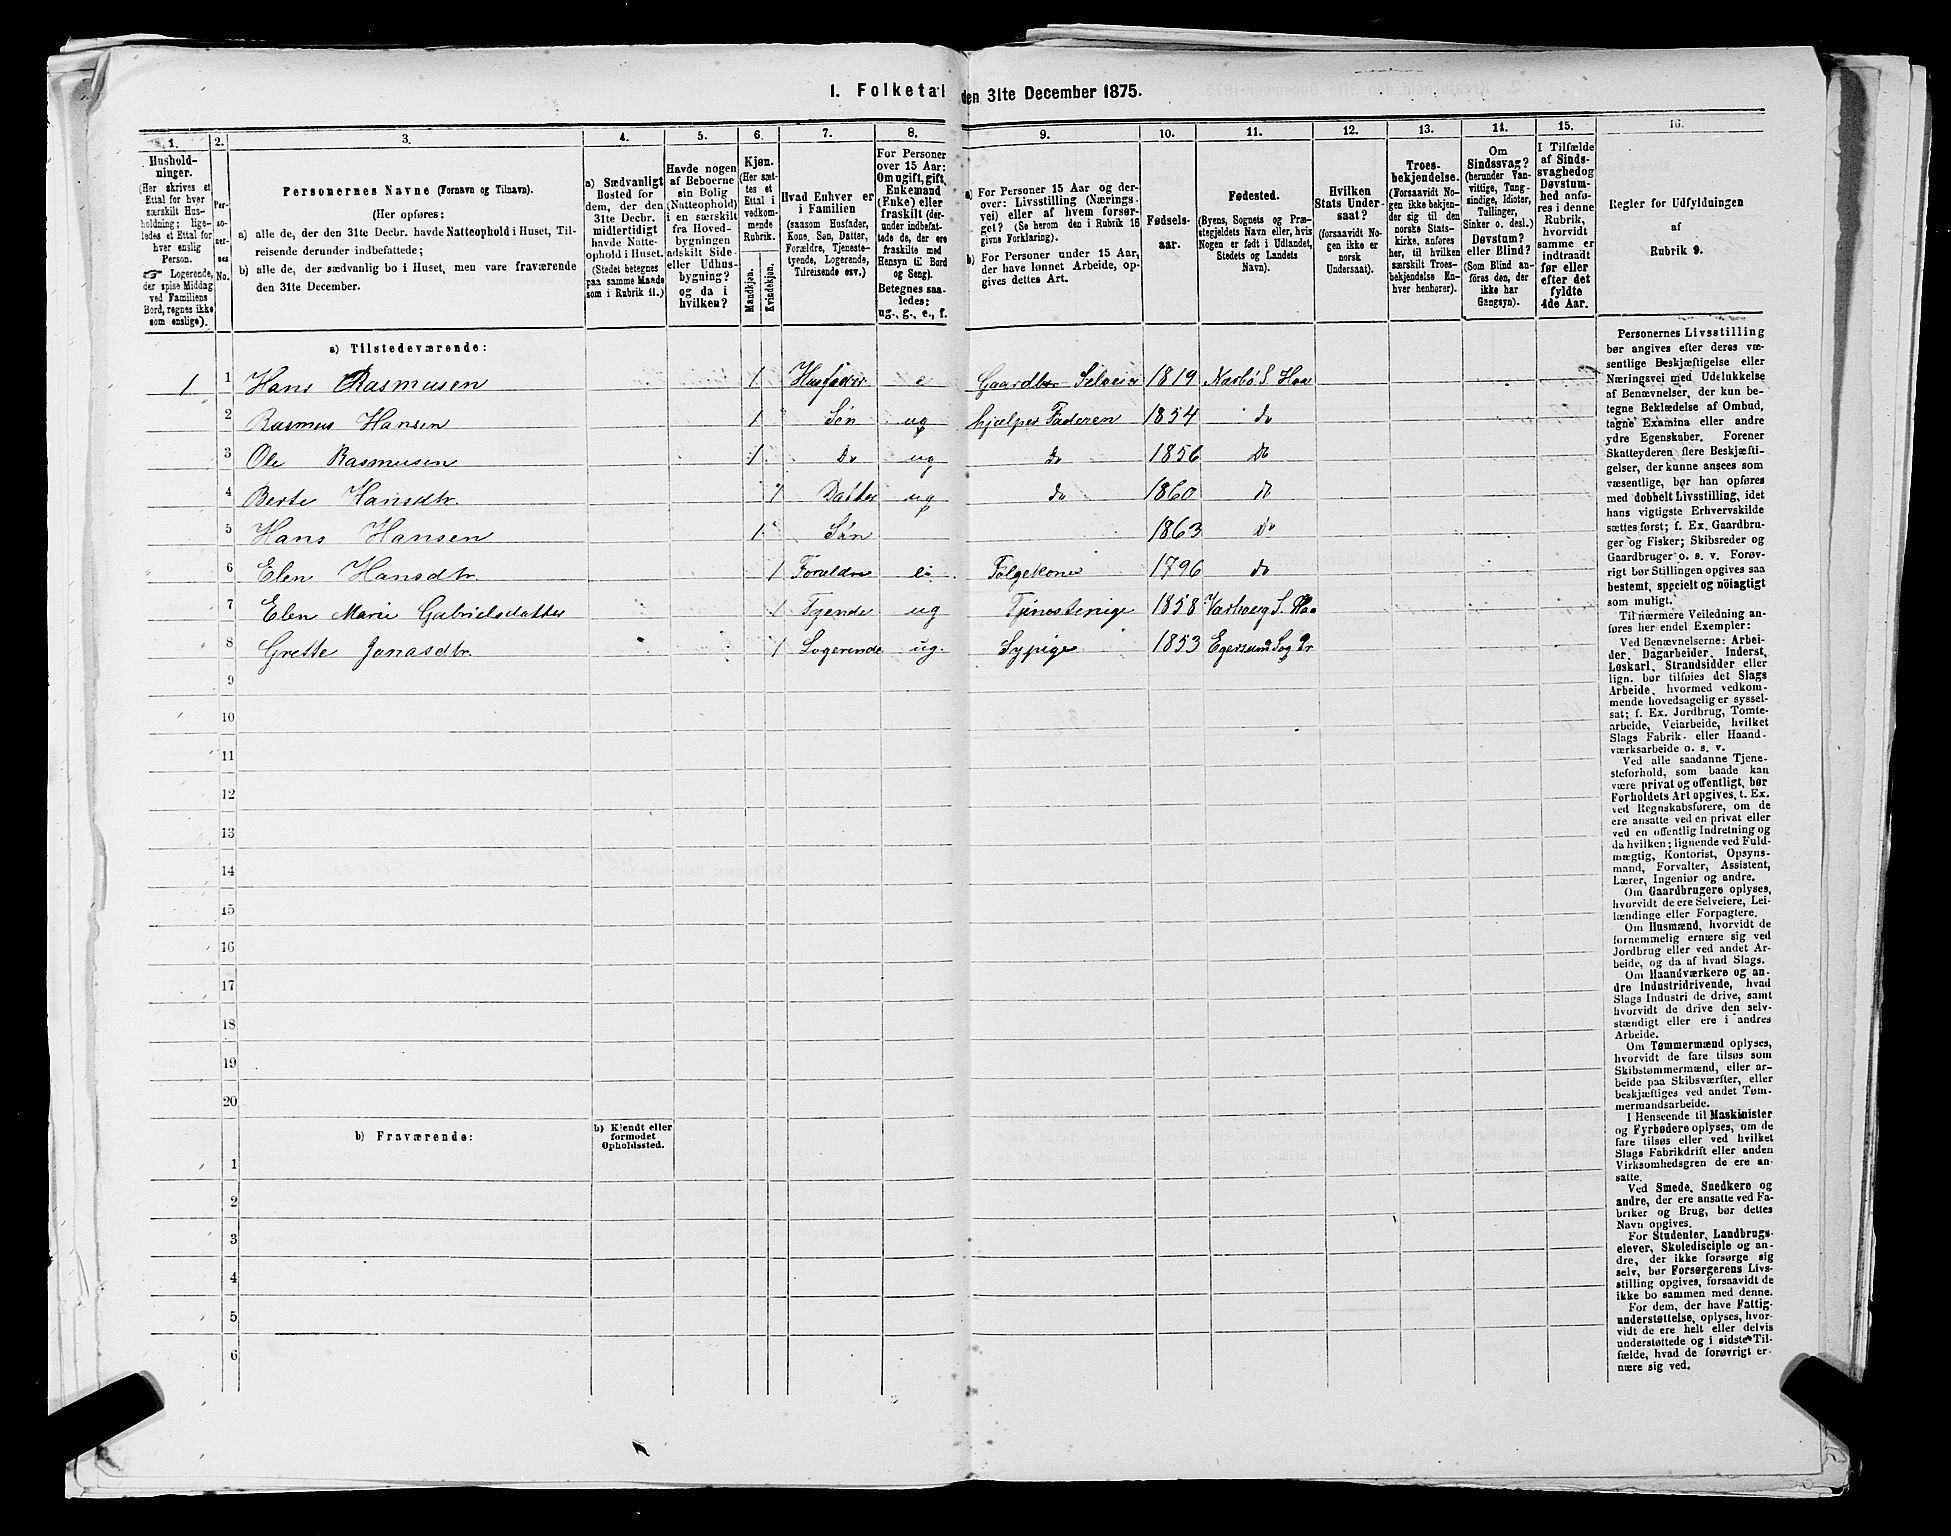 I. Folketal den 31te December 1875.
1.
Hushold-
ninger.
(Her skrives et
Ettal for hver
særskilt Hus-
holdning; lige-
ledes et Ettal for
hver enslig
Person.
☞ Logerende,
der spise Middag
ved Familiens
Bord, regnes ikke
som enslige).
2.
Per-
so-
ner-
nes
No.
3.
Personernes Navne (Fornavn og Tilnavn).
(Her opføres:
a) alle de, der den 31te Decbr. havde Natteophold i Huset, Til-
reisende derunder indbefattede;
b) alle de, der sædvanlig bo i Huset, men vare fraværende
den 31te December.
4.
a) Sædvanligt
Bosted for
dem, der den
31te Decbr.
midlertidigt
havde Natte-
ophold i Huset.
(Stedet betegnes
paa samme Maade
som i Rubrik 11.)
5.
Havde nogen
af Beboerne
sin Bolig
(Natteophold)
i en særskilt
fra Hoved-
bygningen
adskilt Side-
eller Udhus-
bygning?
og da i
hvilken?
6.
Kjøn.
(Her sæt-
tes et
Ettal i
vedkom-
mende
Rubrik.
Mandkjøn.
Kvindekjøn.
7.
Hvad Enhver er
i Familien
(saasom Husfader,
Kone, Søn, Datter,
Forældre, Tjeneste-
tyende, Logerende,
Tilreisende osv.)
8.
For Personer
over 15 Aar:
Om ugift, gift,
Enkemand
(Enke) eller
fraskilt (der-
under indbefat-
tede de, der ere
fraskilte med
Hensyn til Bord
og Seng).
Betegnes saa-
ledes:
ug., g., e., f.
9.
a) For Personer 15 Aar og der-
over: Livsstilling (Nærings-
vei) eller af hvem forsør-
get? (Se herom den i Rubrik 16
givne Forklaring).
b) For Personer under 15 Aar,
der have lønnet Arbeide, op-
gives dettes Art.
10.
Fødsels-
aar.
11.
Fødested.
(Byens, Sognets og Præ-
stegjeldets Navn eller, hvis
Nogen er født i Udlandet,
Stedets og Landets
Navn).
12.
Hvilken
Stats Under-
saat?
(forsaavidt No-
gen ikke er
norsk
Undersaat).
13.
Troes-
bekjendelse.
(Forsaavidt No-
gen ikke bekjen-
der sig til den
norske Stats-
kirke, anføres
her, til hvilken
særskilt Troes-
bekjendelse En-
hver henhører).
14.
Om
Sindssvag?
(herunder Van-
vittige, Tung-
sindige, Idioter,
Tullinger,
Sinker o. desl.)
Døvstum?
eller Blind?
(Som Blind an-
føres den, der
ikke har
Gangsyn).
15.
I Tilfælde
af Sinds-
svaghed og
Døvstum-
hed anfø-
res i denne
Rubrik,
hvorvidt
samme er
indtraadt
før eller
efter det
fyldte
4de Aar.
16.
Regler for Udfyldningen
af
Rubrik 9.
a) Tilstedeværende:
1 1 Hans Rasmusen 1 Husfader e Gaardbr Selveier 1819 Nærbø S. Haa
2 Rasmus Hansen 1 Søn ug hjælper Faderen 1854 do
3 Ole Rasmusen 1 Do ug do 1856 Do
4 Berte Hansdtr. 1 Datter ug do 1860 do
5 Hans Hansen 1 Søn 1863 Do
6 Elen Hansdtr. 1 Forældre Følgekone 1796 do
7 Elen Marie Gabrielsdatter 1 Tyende ug Tjenestepige 1858 Varhoug S. Haa
8 Grette Jonasdtr. 1 Logerende ug. Sypige 1853 Egersund Sog Pr
9
10
11
12
13
14
15
16
17
18
19
20
b) Fraværende:
b) Kjendt eller
formodet
Opholdssted.
1
2
3
4
5
6
Personernes Livsstilling
bør angives efter deres væ-
sentlige Beskjæftigelse eller
Næringsvei med Udelukkelse
af Benævnelser, der kun be-
tegne Beklædelse af Ombud,
tagne Examina eller andre
ydre Egenskaber. Forener
Skatteyderen flere Beskjæfti-
gelser, der kunne ansees som
væsentlige, bør han opføres
med dobbelt Livsstilling, idet
hans vigtigste Erhvervskilde
sættes først; f. Ex. Gaardbru-
ger og Fisker; Skibsreder og
Gaardbruger o. s. v. Forøv-
rigt bør Stillingen opgives saa
bestemt, specielt og nøiagtigt
som muligt.
Til nærmere Veiledning an-
føres her endel Exempler:
Ved Benævnelserne: Arbei-
der, Dagarbeider, Inderst,
Løskarl, Strandsidder eller
lign. bør tilføies det Slags
Arbeide, hvormed vedkom-
mende hovedsagelig er syssel-
sat; f. Ex. Jordbrug, Tomte-
arbeide, Veiarbeide, hvilket
Slags Fabrik- eller Haand-
værksarbeide o. s. v.
Ved alle saadanne Tjene-
steforhold, som baade kan
være privat og offentligt, bør
Forholdets Art opgives, t. Ex.
ved Regnskabsførere, om de
ere ansatte ved en privat eller
ved en offentlig Indretning og
da hvilken; lignende ved Fuld-
mægtig, Kontorist, Opsyns-
mand, Forvalter, Assistent,
Lærer, Ingeniør og andre.
Om Gaardbrugere oplyses,
hvorvidt de ere Selveiere, Lei-
lændinge eller Forpagtere.
Om Husmænd, hvorvidt de
fornemmelig ernære sig ved
Jordbrug eller ved andet Ar-
beide, og da af hvad Slags.
Om Haandværkere og an-
dre Industridrivende, hvad
Slags Industri de drive, samt
hvorvidt de drive den selv-
stændigt eller ere i andres
Arbeide.
Om Tømmermænd oplyses,
hvorvidt de fare tilsøs som
Skibstømmermænd, eller ar-
beide paa Skibsværfter, eller
beskjæftiges ved andet Tøm-
mermandsarbeide.
I Henseende til Maskinister
og Fyrbødere oplyses, om de
fare tilsøs eller ved hvilket
Slags Fabrikdrift eller anden
Virksomhedsgren de ere an-
satte.
Ved Smede, Snedkere og
andre, der ere ansatte ved Fa-
briker og Brug, bør dettes
Navn opgives.
For Studenter, Landbrugs-
elever, Skoledisciple og an-
dre, der ikke forsørge sig
selv, bør Forsørgerens Livs-
stilling opgives, forsaavidt de
ikke bo sammen med denne.
For dem, der have Fattig-
understøttelse, oplyses, hvor-
vidt de ere helt eller delvis
understøttede og i sidste Til-
fælde, hvad de forøvrigt er-
nære sig ved.